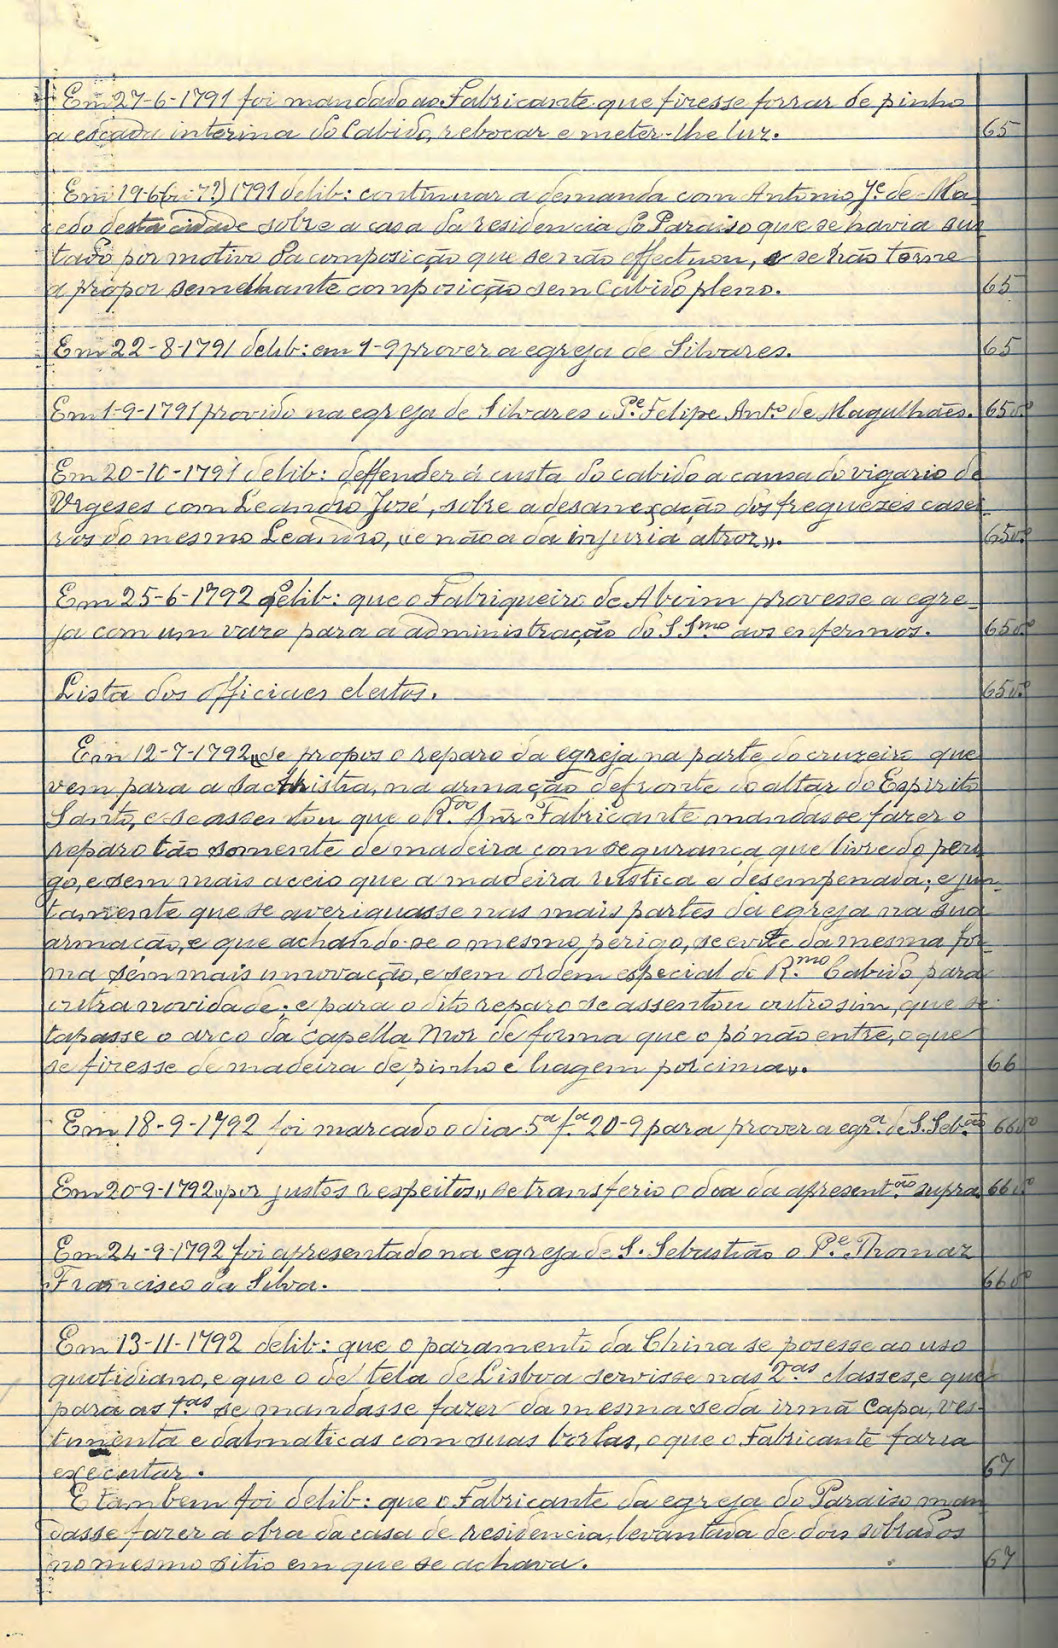 Em 27-6-1791 foi mandado ao Fabricante que fizesse forrar de pinho
a escada interina do Cabido, rebocar e meter-lhe luz. 65
Em 19-6 (ou 7?) 1791 delib: continuar a demanda com Antonio Je. de Ma-
cedo desta cidade sobre a casa da residencia do Paraiso que se havia sus-
tado por motivo da composição que se não effectuou, e se não torne
a propor semelhante composição sem Cabido pleno. 65
Em 22-8-1791 delib: em 1-9 prover a egreja de Silvares. 65
Em 1-9-1791 provido na egreja de Silvares o Pe. Felipe Anto. de Magalhães. 65vo
Em 20-10-1791 delib: deffender á custa do cabido a causa do vigario de
Urgeses com Leandro José, sobre a desanexação dos freguezes casei-
ros do mesmo Leandro, «e não a da injuria atroz». 65vo
Em 25-6-1792 delib: que o Fabriqueiro de Alvim provesse a egre-
ja com um vazo para a administração do SSmo aos enfermos. 65vo
Lista dos officiaes eleitos. 65vo
Em 12-7-1792 «se propos o reparo da egreja na parte do cruzeiro que
vem para a sachristia, na armação defronte do altar do Espirito
Santo, e se assentou que o R.do Snr. Fabricante mandasse fazer o
reparo tão somente de madeira com segurança que livre do peri-
go, e sem mais aceio que a madeira rustica e desempenada; e jun-
tamente que se averiguasse nas mais partes da egreja na sua
armação, e que achando-se o mesmo perigo, se evite da mesma for-
ma sem mais innovação, e sem ordem especial do R.mo Cabido para
outra novidade; e para o dito reparo se assentou outrosim, que se
tapasse o arco da Capella Mor de forma que o pó não entre, o que
se fizesse de madeira de pinho e lragem por cima». 66
Em 18-9-1792 foi marcado o dia 5a fa. 20-9 para prover a egra. de S. Sebão 66vo
Em 20-9-1792 «por justos respeitos» se transferio o dia da apresentão supra 66vo
Em 24-9-1792 foi apresentado na egreja de S. Sebastião o Pe. Thomaz
Francisco da Silva. 66vo
Em 13-11-1792 delib: que o paramento da China se posesse ao uso
quotidiano, e que o de tela de Lisboa servisse nas 2as classes, e que
para as 1as se mandasse fazer da mesma seda irmã Capa, ves-
timenta e dalmaticas com suas borlas, o que o Fabricante faria
executar. 67
E tambem foi delib: que o Fabricante da egreja do Paraiso man-
dasse fazer a obra da casa de residencia, levantada de dois sobrados
no mesmo sitio em que se achava. 67